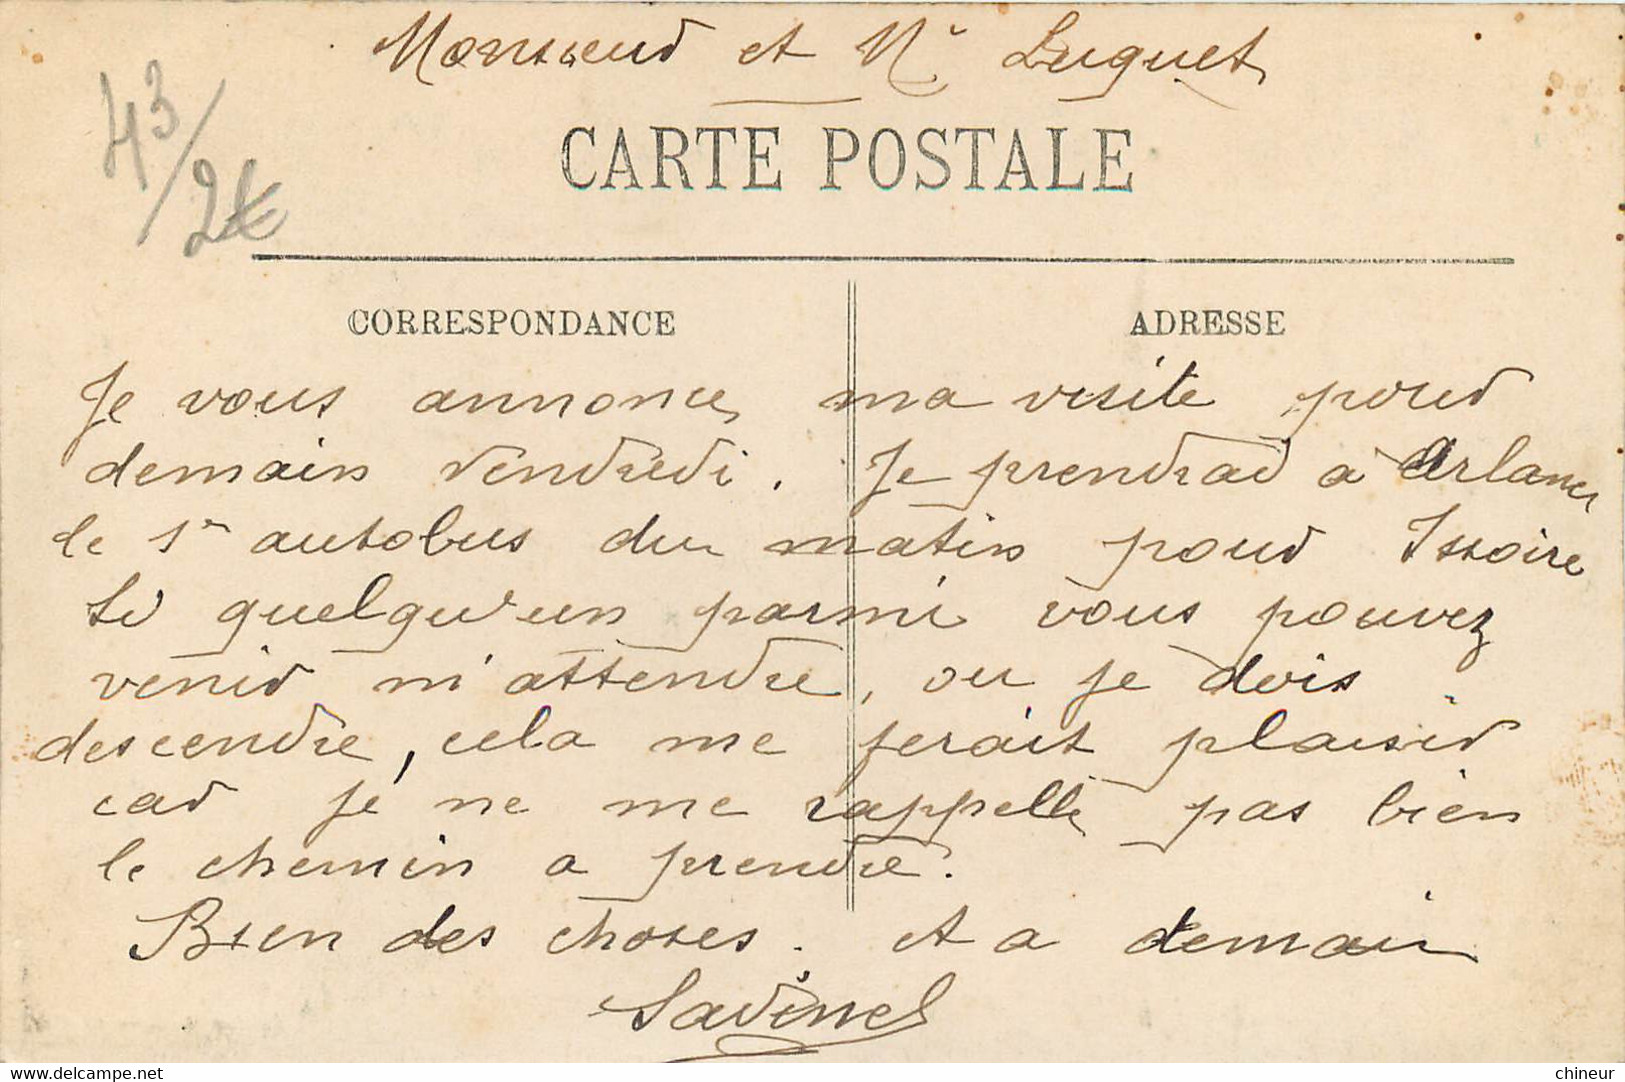 Monsieur et Me Luguet
43/2€
CARTE POSTALE
CORRESPONDANCE
ADRESSE
Je vous annonce ma visite pour
demain Vendredi. Je prendrai à Arlanc
le 1er autobus du matin pour Issoire
Si quelqu'un parmi vous pouvez
venir m'attendre, ou je dois
descendre, cela me ferait plaisir
car je ne me rappelle pas bien
le chemin a prendre.
Bien des choses. et a demain
Savinel
delcampe.net
chineur